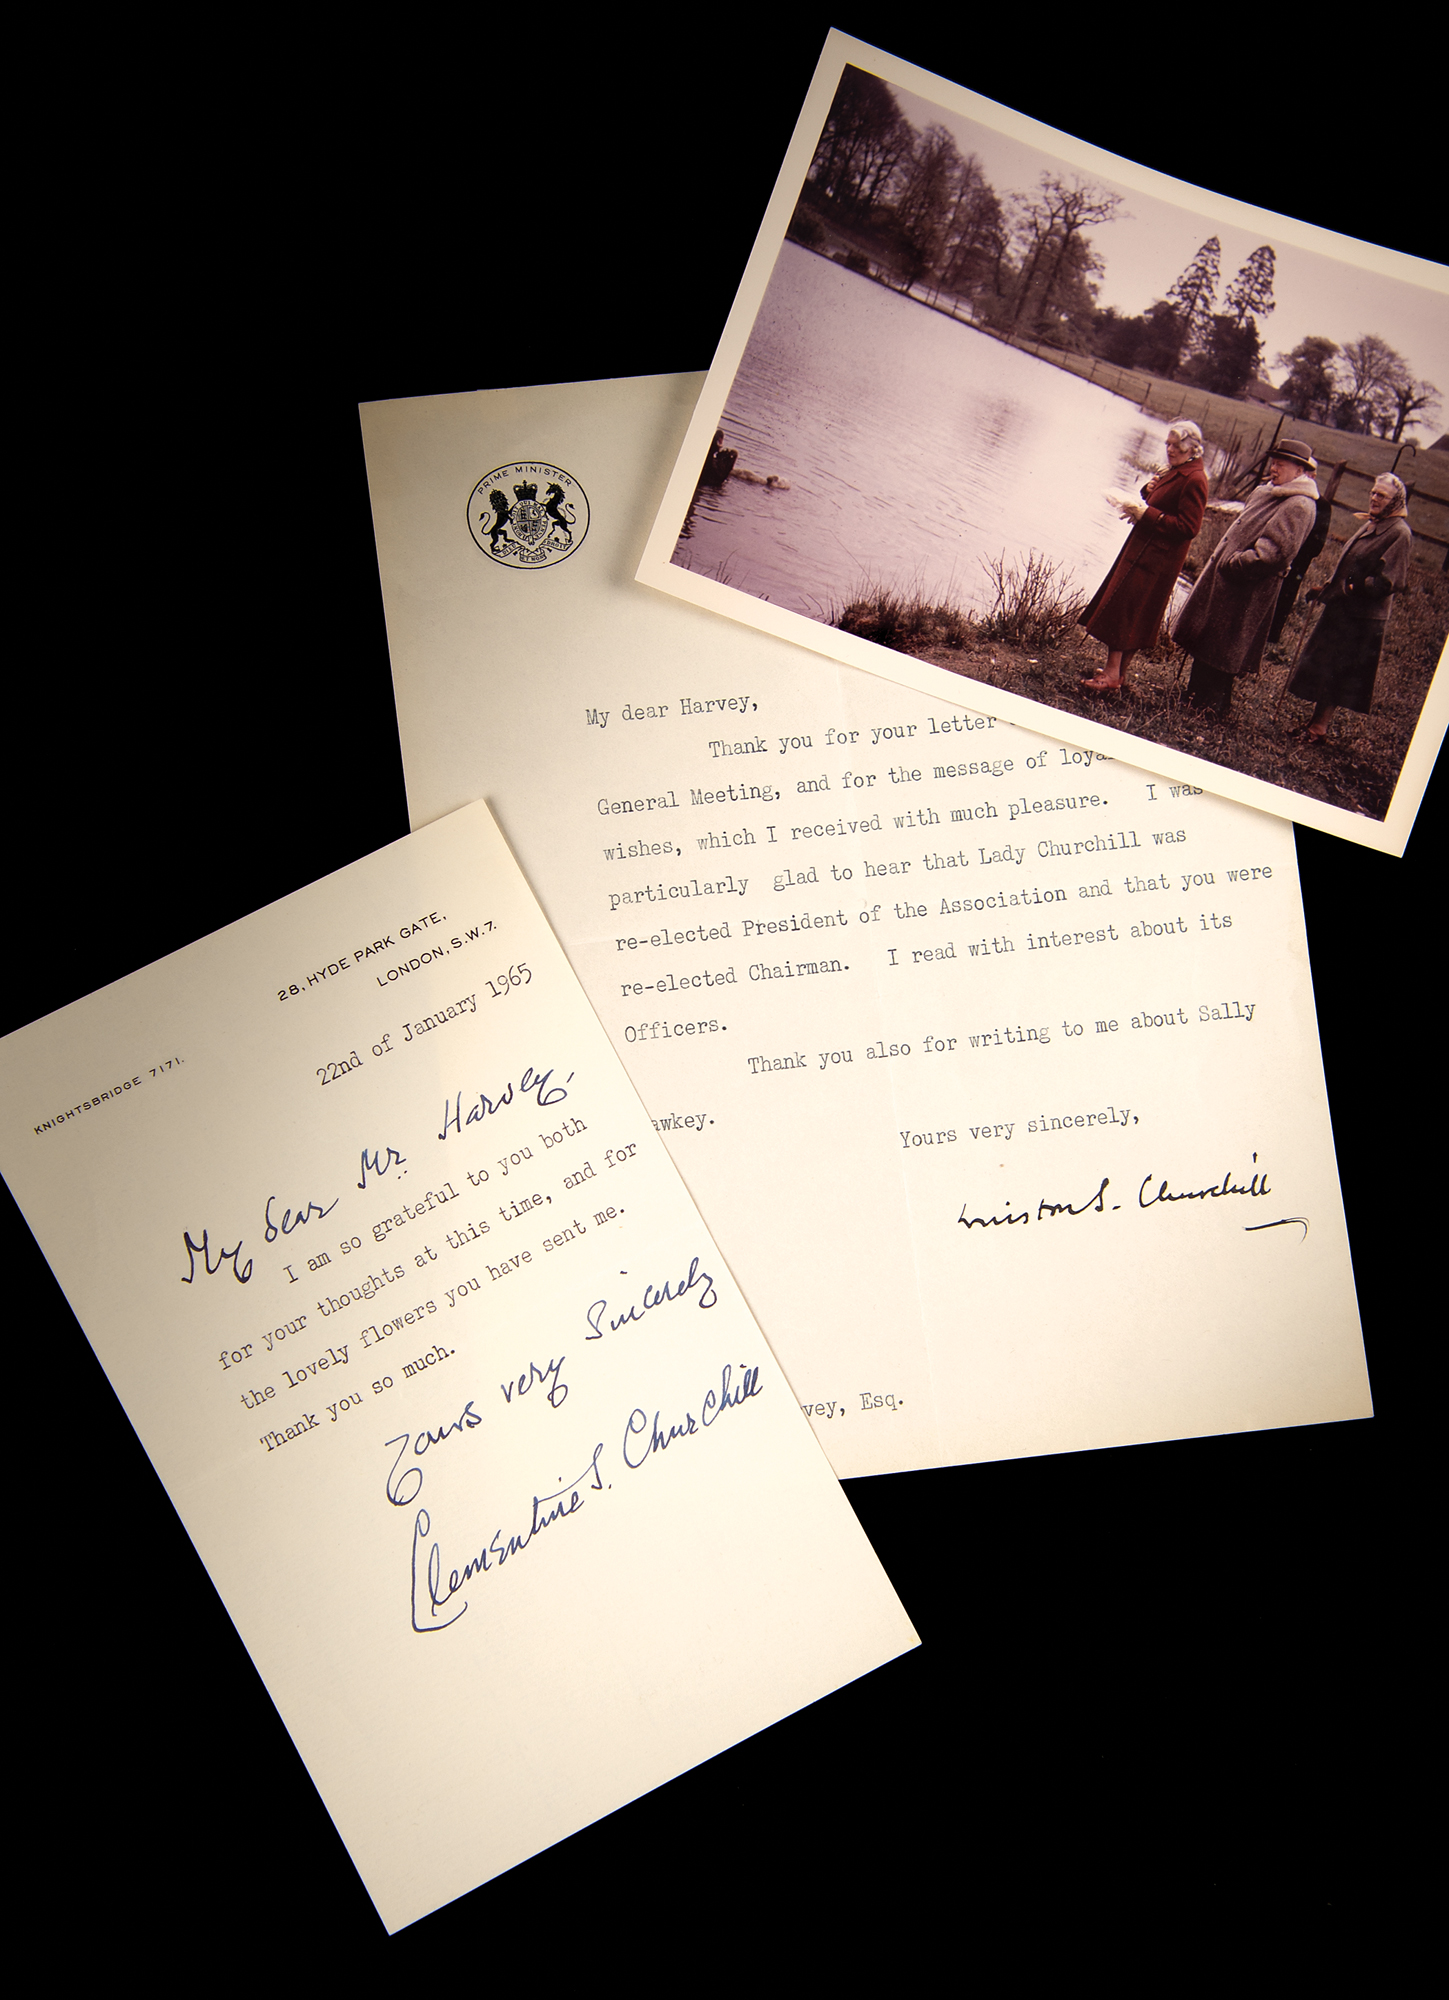 PRIME MINISTER
My dear Harvey,
Thank you for your letter
General Meeting, and for the message of
wishes, which I received with much pleasure. I was
particularly glad to hear that Lady Churchill was
re-elected President of the Association and that you were
re-elected Chairman. I read with interest about its
Officers.
Thank you also for writing to me about Sally
awkey.
Yours very sincerely,
Winston S. Churchill
vey, Esq.
28, HYDE PARK GATE,
LONDON, S.W.7.
KNIGHTSBRIDGE 7171.
22nd of January 1965
My dear Mr. Harvey,
I am so grateful to you both
for your thoughts at this time, and for
the lovely flowers you have sent me.
Thank you so much.
Yours very sincerely
Clementine S. Churchill